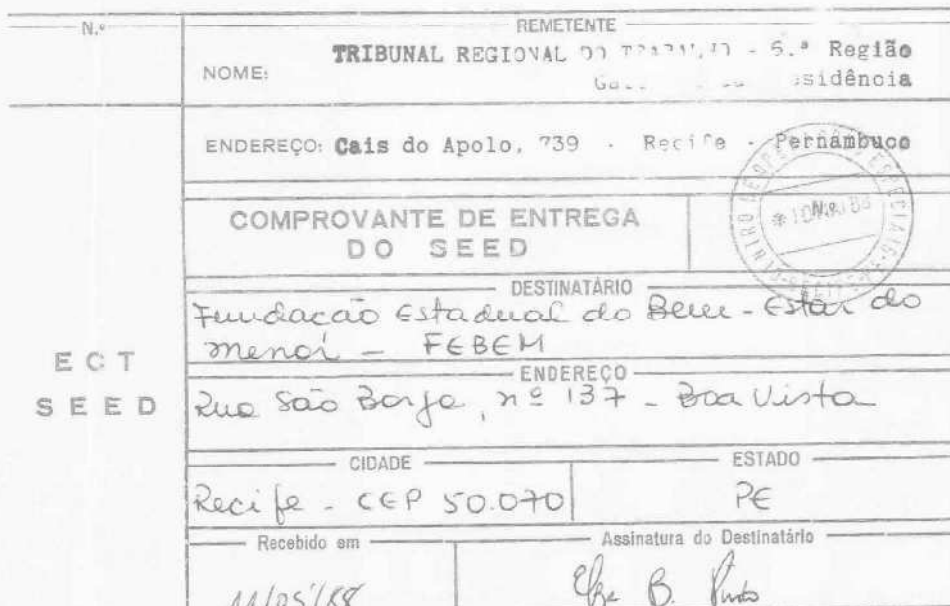 N.º
REMETENTE
NOME: TRIBUNAL REGIONAL DO TRABALHO - 6.ª Região
ENDEREÇO: Cais do Apolo, 739 - Recife - Pernambuco
COMPROVANTE DE ENTREGA
DO SEED
N.º
DESTINATÁRIO
Fundacão Estadual do Bem-Estar do
menor - FEBEM
ENDEREÇO
ECT
SEED
Rua São Borja, nº 137 - Boa Vista
CIDADE
ESTADO
Recife - CEP 50.070
PE
Recebido em
Assinatura do Destinatário
11/05/88
B. Pinto